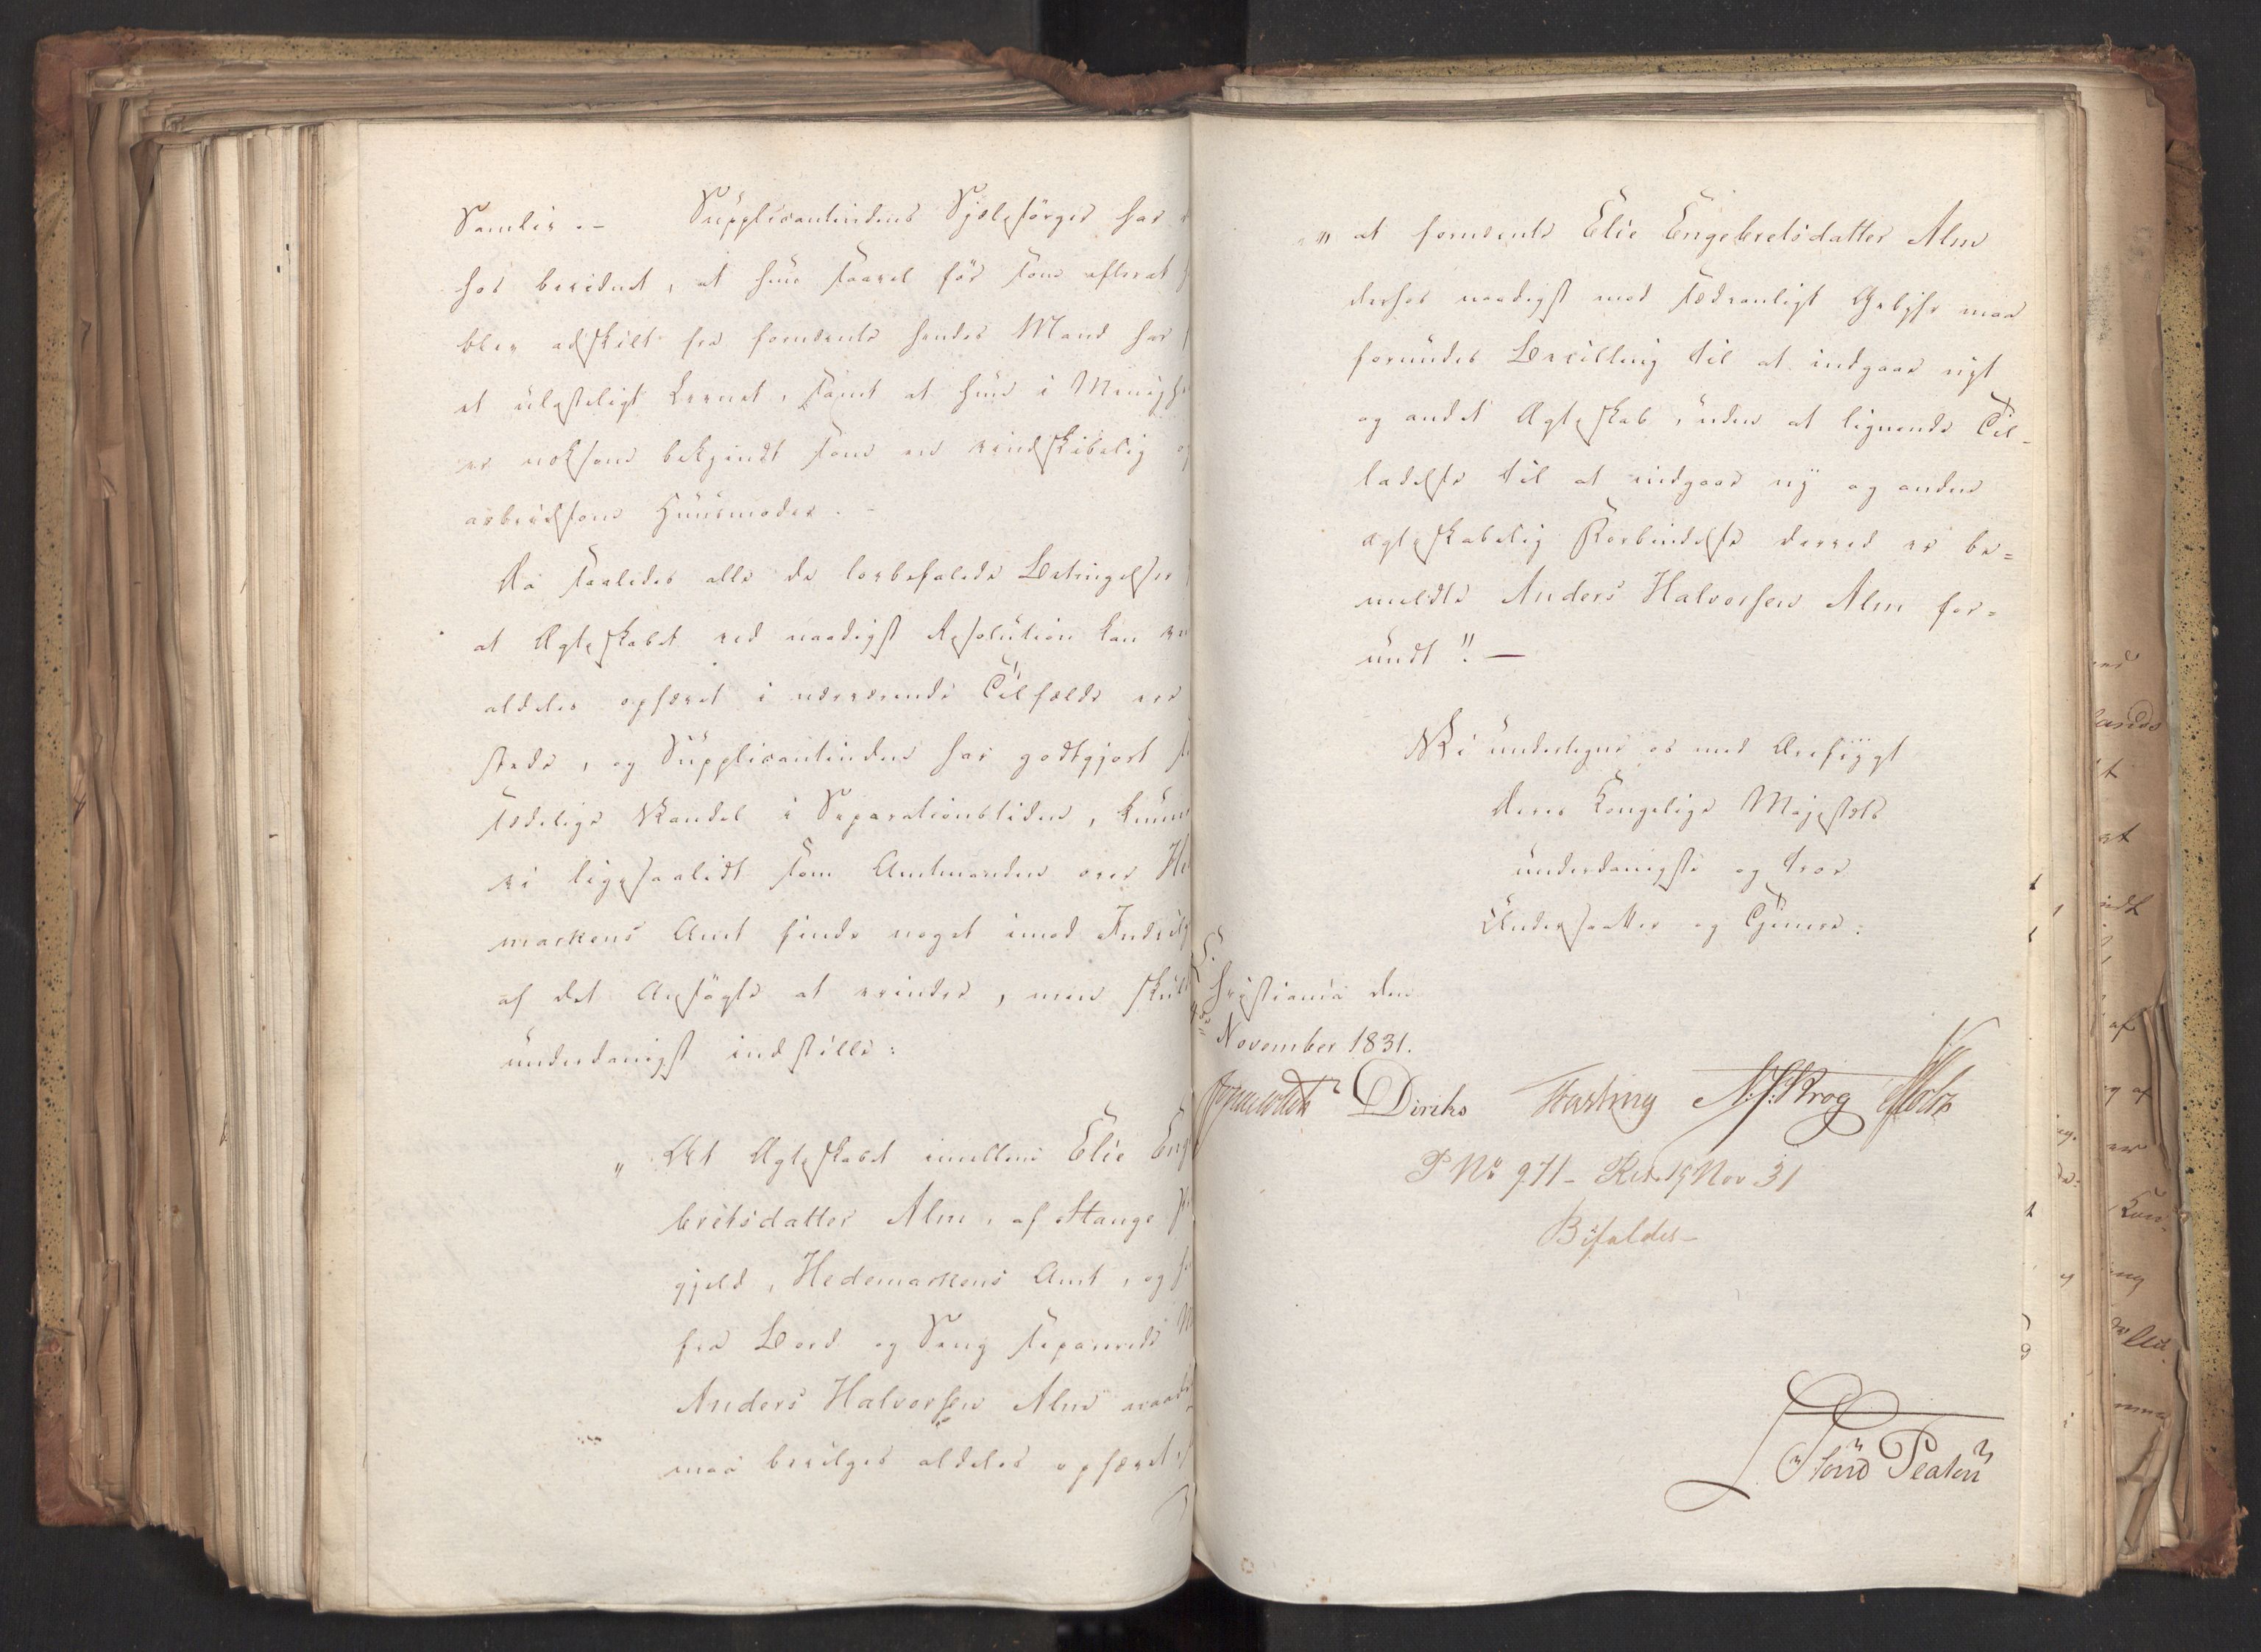 Samliv. — Supplicantindens Sjælesörger har
hos bevidnet, at hun saavel för som efterat
blev adskilt fra fornævnte hendes Mand har
et ulasteligt Levnet, samt at hun i Menighe
er noksom bekjendt som en vindskibelig
arbeidsom Huusmoder. —
Da saaledes alle de lovbefalede Betingelser
at Ægteskabet ved naadigst Resolution kan
aldeles ophævet i nærværende Tilfælde ere
stede, og Supplicantinden har godtgjort
sædelige Vandel i Separationstiden, kunne
vi ligesaalidt som Amtmanden over He
markens Amt finde noget imod Indvilg
af det Ansögte at erindre, men skul
underdanigst indstille:
" At Ægteskabet imellem Elie Eng
bretsdatter Alm, af Stange
gjeld, Hedemarkens Amt, og
fra Bord og Seng separerede M
Anders Halvorsen Alm naad
maa bevilges aldeles ophævet,
"" at fornævnte Elie Engebretsdatter Alm
derhos naadigst mod sædvanligt Gebyhr maa
forundes Bevilling til at indgaae nyt
og andet Ægteskab, uden at lignende Til-
ladelse til at indgaae ny og anden
ægteskabelig Forbindelse derved er be=
meldte Anders Halvorsen Alm for=
undt". —
Vi undertegne os med Ærefrygt
Deres Kongelige Majestæts
underdanigste og troe
Undersaatter og Tjenere:
Christiania den
November 1831.
Diriks Fasting N. J. Krog Holst
P No 971 — Res. 19 Nov 31
Bifaldes —